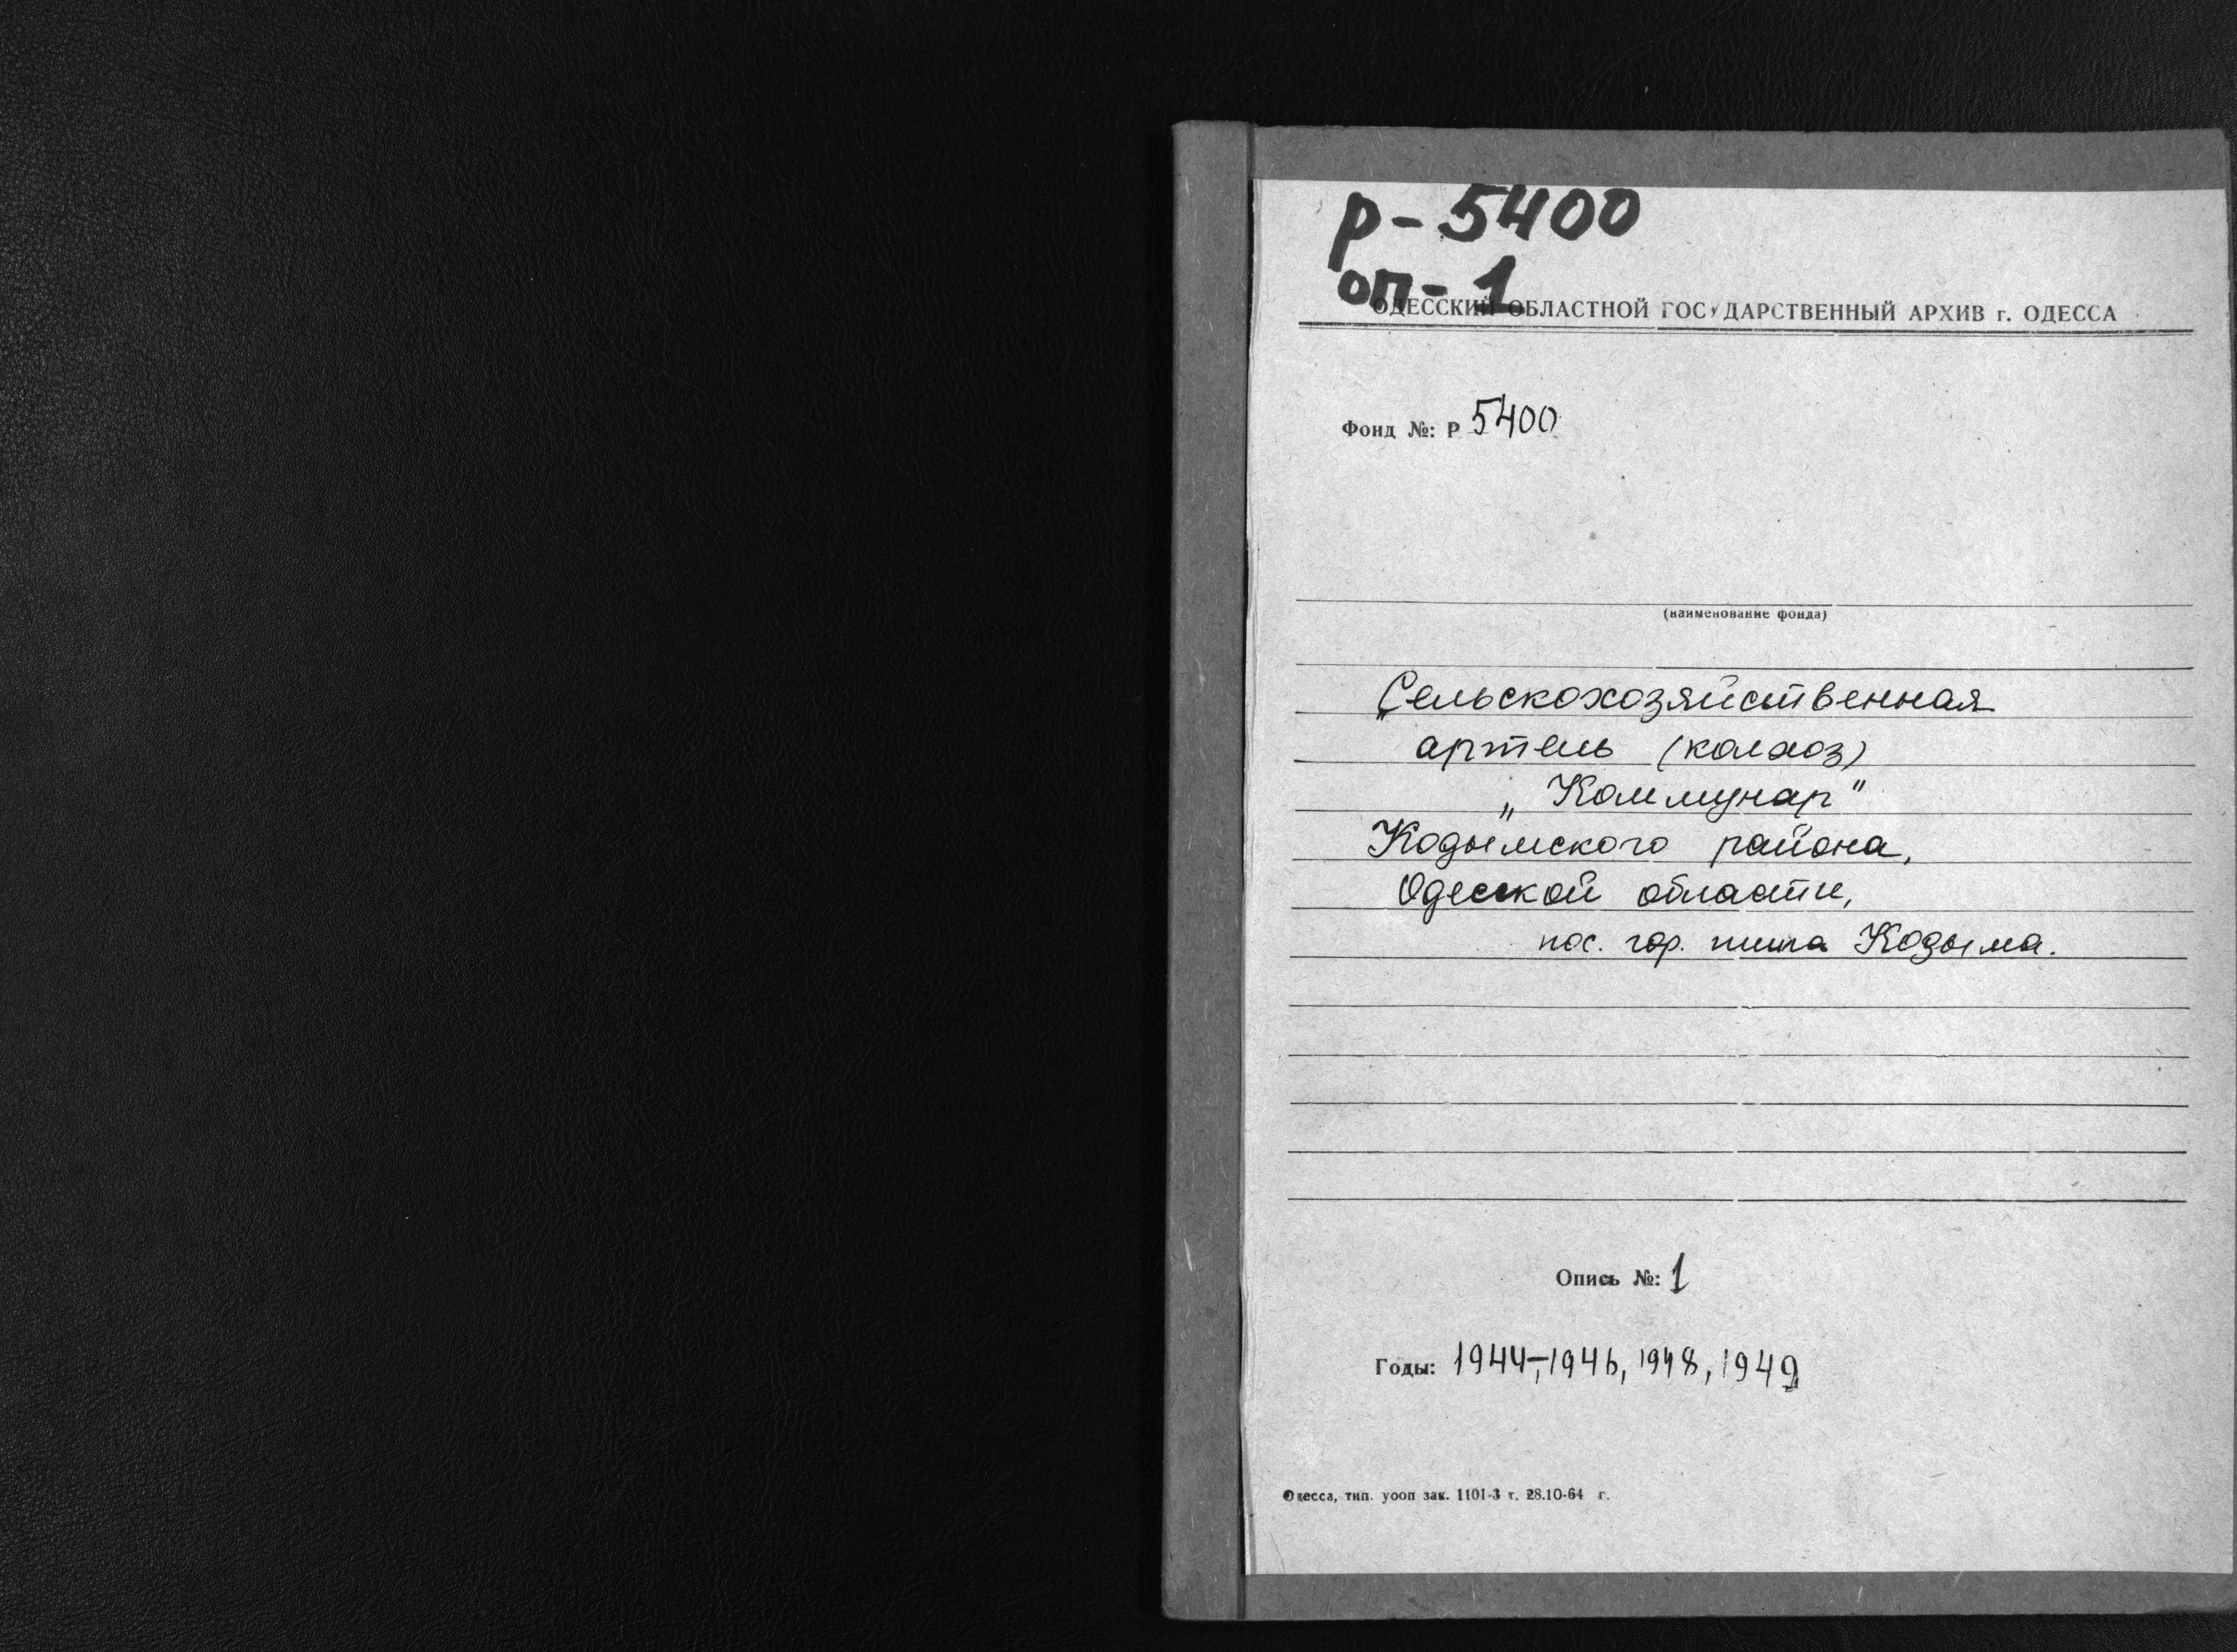 р-5400
оп-1
ОДЕССКИЙ ОБЛАСТНОЙ ГОСУДАРСТВЕННЫЙ АРХИВ г. ОДЕССА
Фонд №: Р 5400
(наименование фонда)
Сельскохозяйственная
артель (колхоз)
„Коммунар"
Кодымского района,
Одесской области,
пос. гор. типа Кодыма.
Опись №: 1
Годы: 1944-1946, 1948, 1949
Одесса, тип. уооп зак. 1101-3 т. 28.10-64 г.